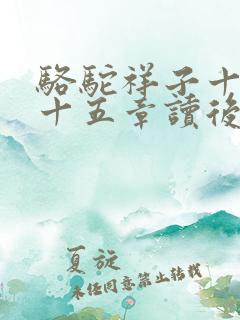 駱駝祥子十
十五章讀後
夏旋
未经同意禁止转载